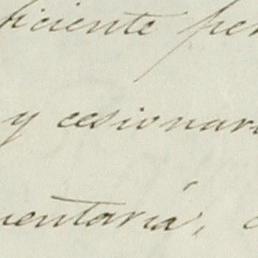 ficiente per
y cesionar
mentaria,